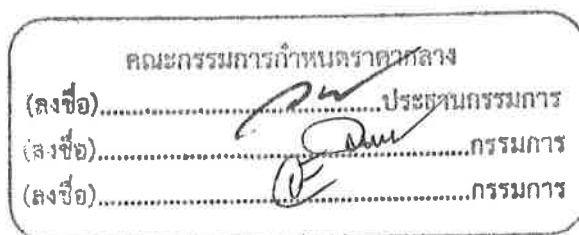 คณะกรรมการกำหนดราคากลาง
(ลงชื่อ)..........................................ประธานกรรมการ
(ลงชื่อ)..........................................กรรมการ
(ลงชื่อ)..........................................กรรมการ